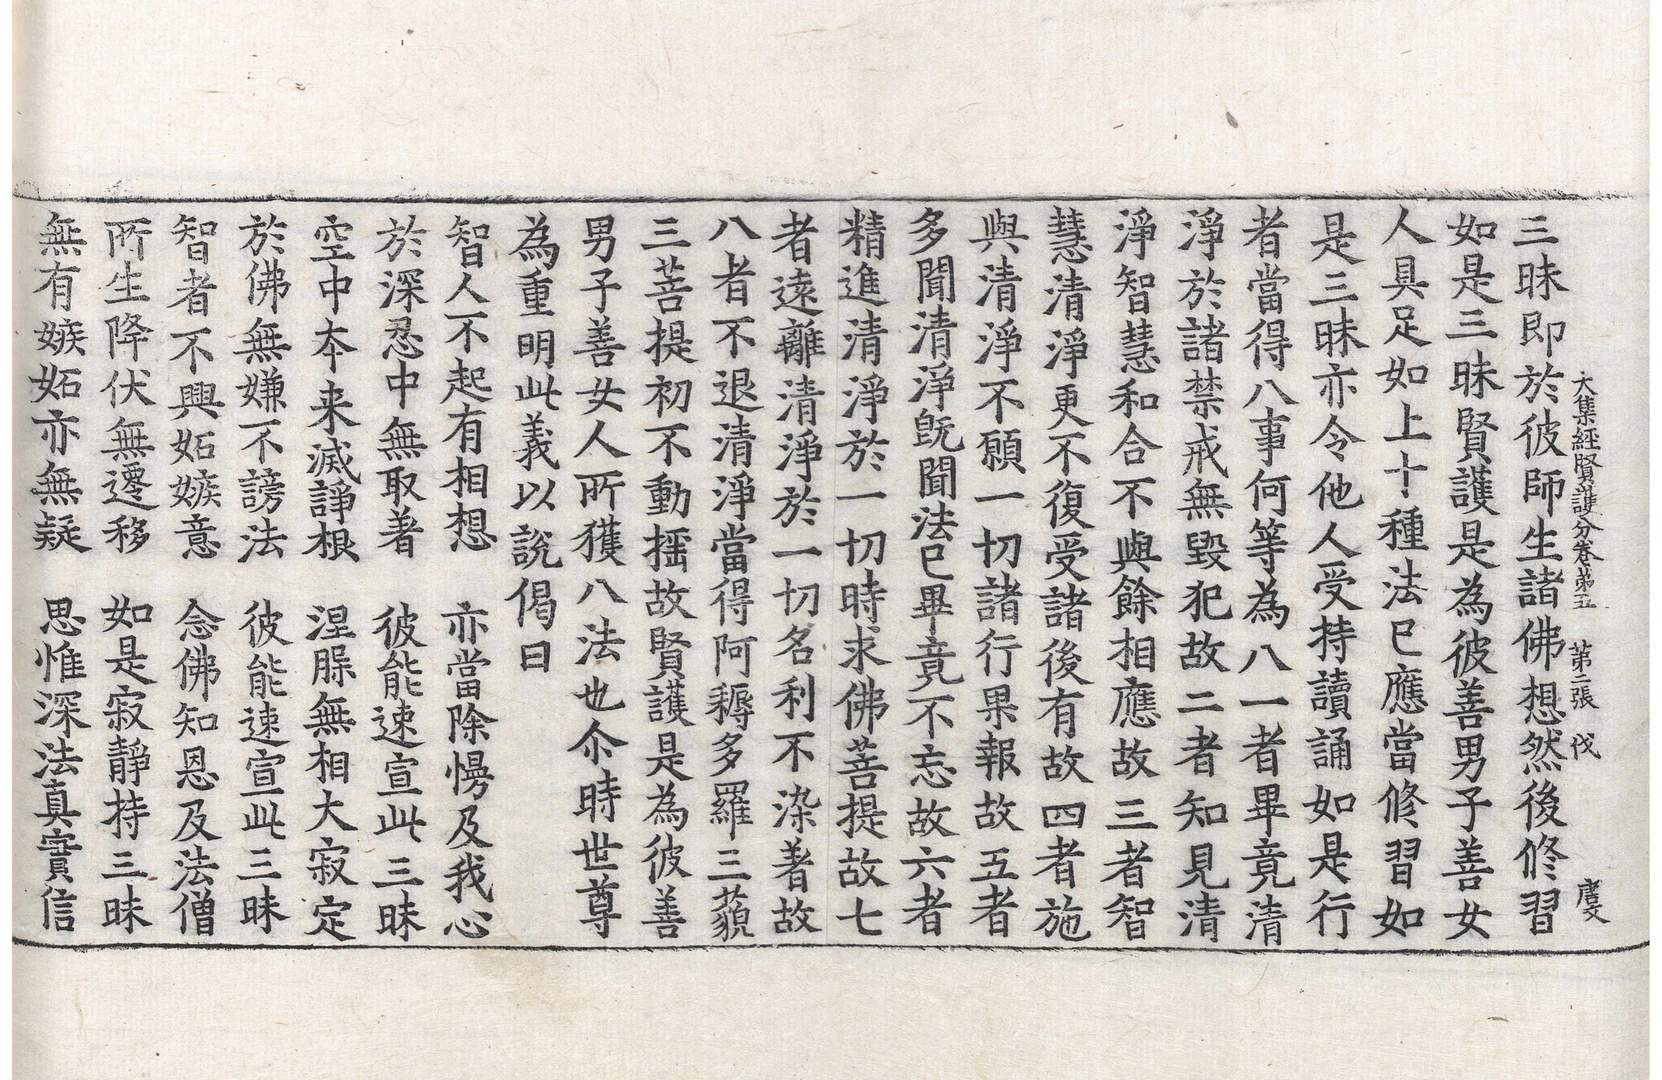 大集經賢護分卷第五 第二張 伐 唐文
三昧即於彼師生諸佛想然後修習
如是三昧賢護是為彼善男子善女
人具足如上十種法已應當修習如
是三昧亦令他人受持讀誦如是行
者當得八事何等為八一者畢竟清
淨於諸禁戒無毀犯故二者知見清
淨智慧和合不與餘相應故三者智
慧清淨更不復受諸後有故四者施
與清淨不願一切諸行果報故五者
多聞清淨旣聞法已畢竟不忘故六者
精進清淨於一切時求佛菩提故七
者遠離清淨於一切名利不染著故
八者不退清淨當得阿耨多羅三藐
三菩提初不動揺故賢護是為彼善
男子善女人所獲八法也尒時世尊
為重明此義以說偈曰
智人不起有相想 亦當除慢及我心
於深忍中無取著 彼能速宣此三昧
空中夲来滅諍根 涅槃無相大寂定
於佛無嫌不謗法 彼能速宣此三昧
智者不興妬嫉意 念佛知恩及法僧
所生降伏無遷移 如是寂靜持三昧
無有嫉妬亦無疑 思惟深法真實信